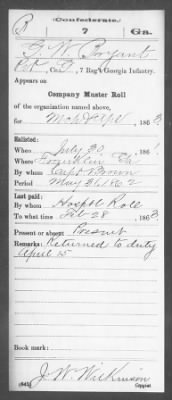 (Confederate.)
B 7 Ga.
G. W. Bryant
Pvt, Co. , 7 Reg't Georgia Infantry.
Appears on
Company Muster Roll
of the organization named above,
for Mch & Apl, 1863
Enlisted:
When July 30, 186
Where Franklin Ga.
By whom Capt Brown
Period May 31, 1862
Last paid:
By whom Hosptl Role
To what time Feb 28, 1863.
Present or absent Present
Remarks: Returned to duty
April 15
Book mark:
J. W. Wilkinson
(642) Copyist.